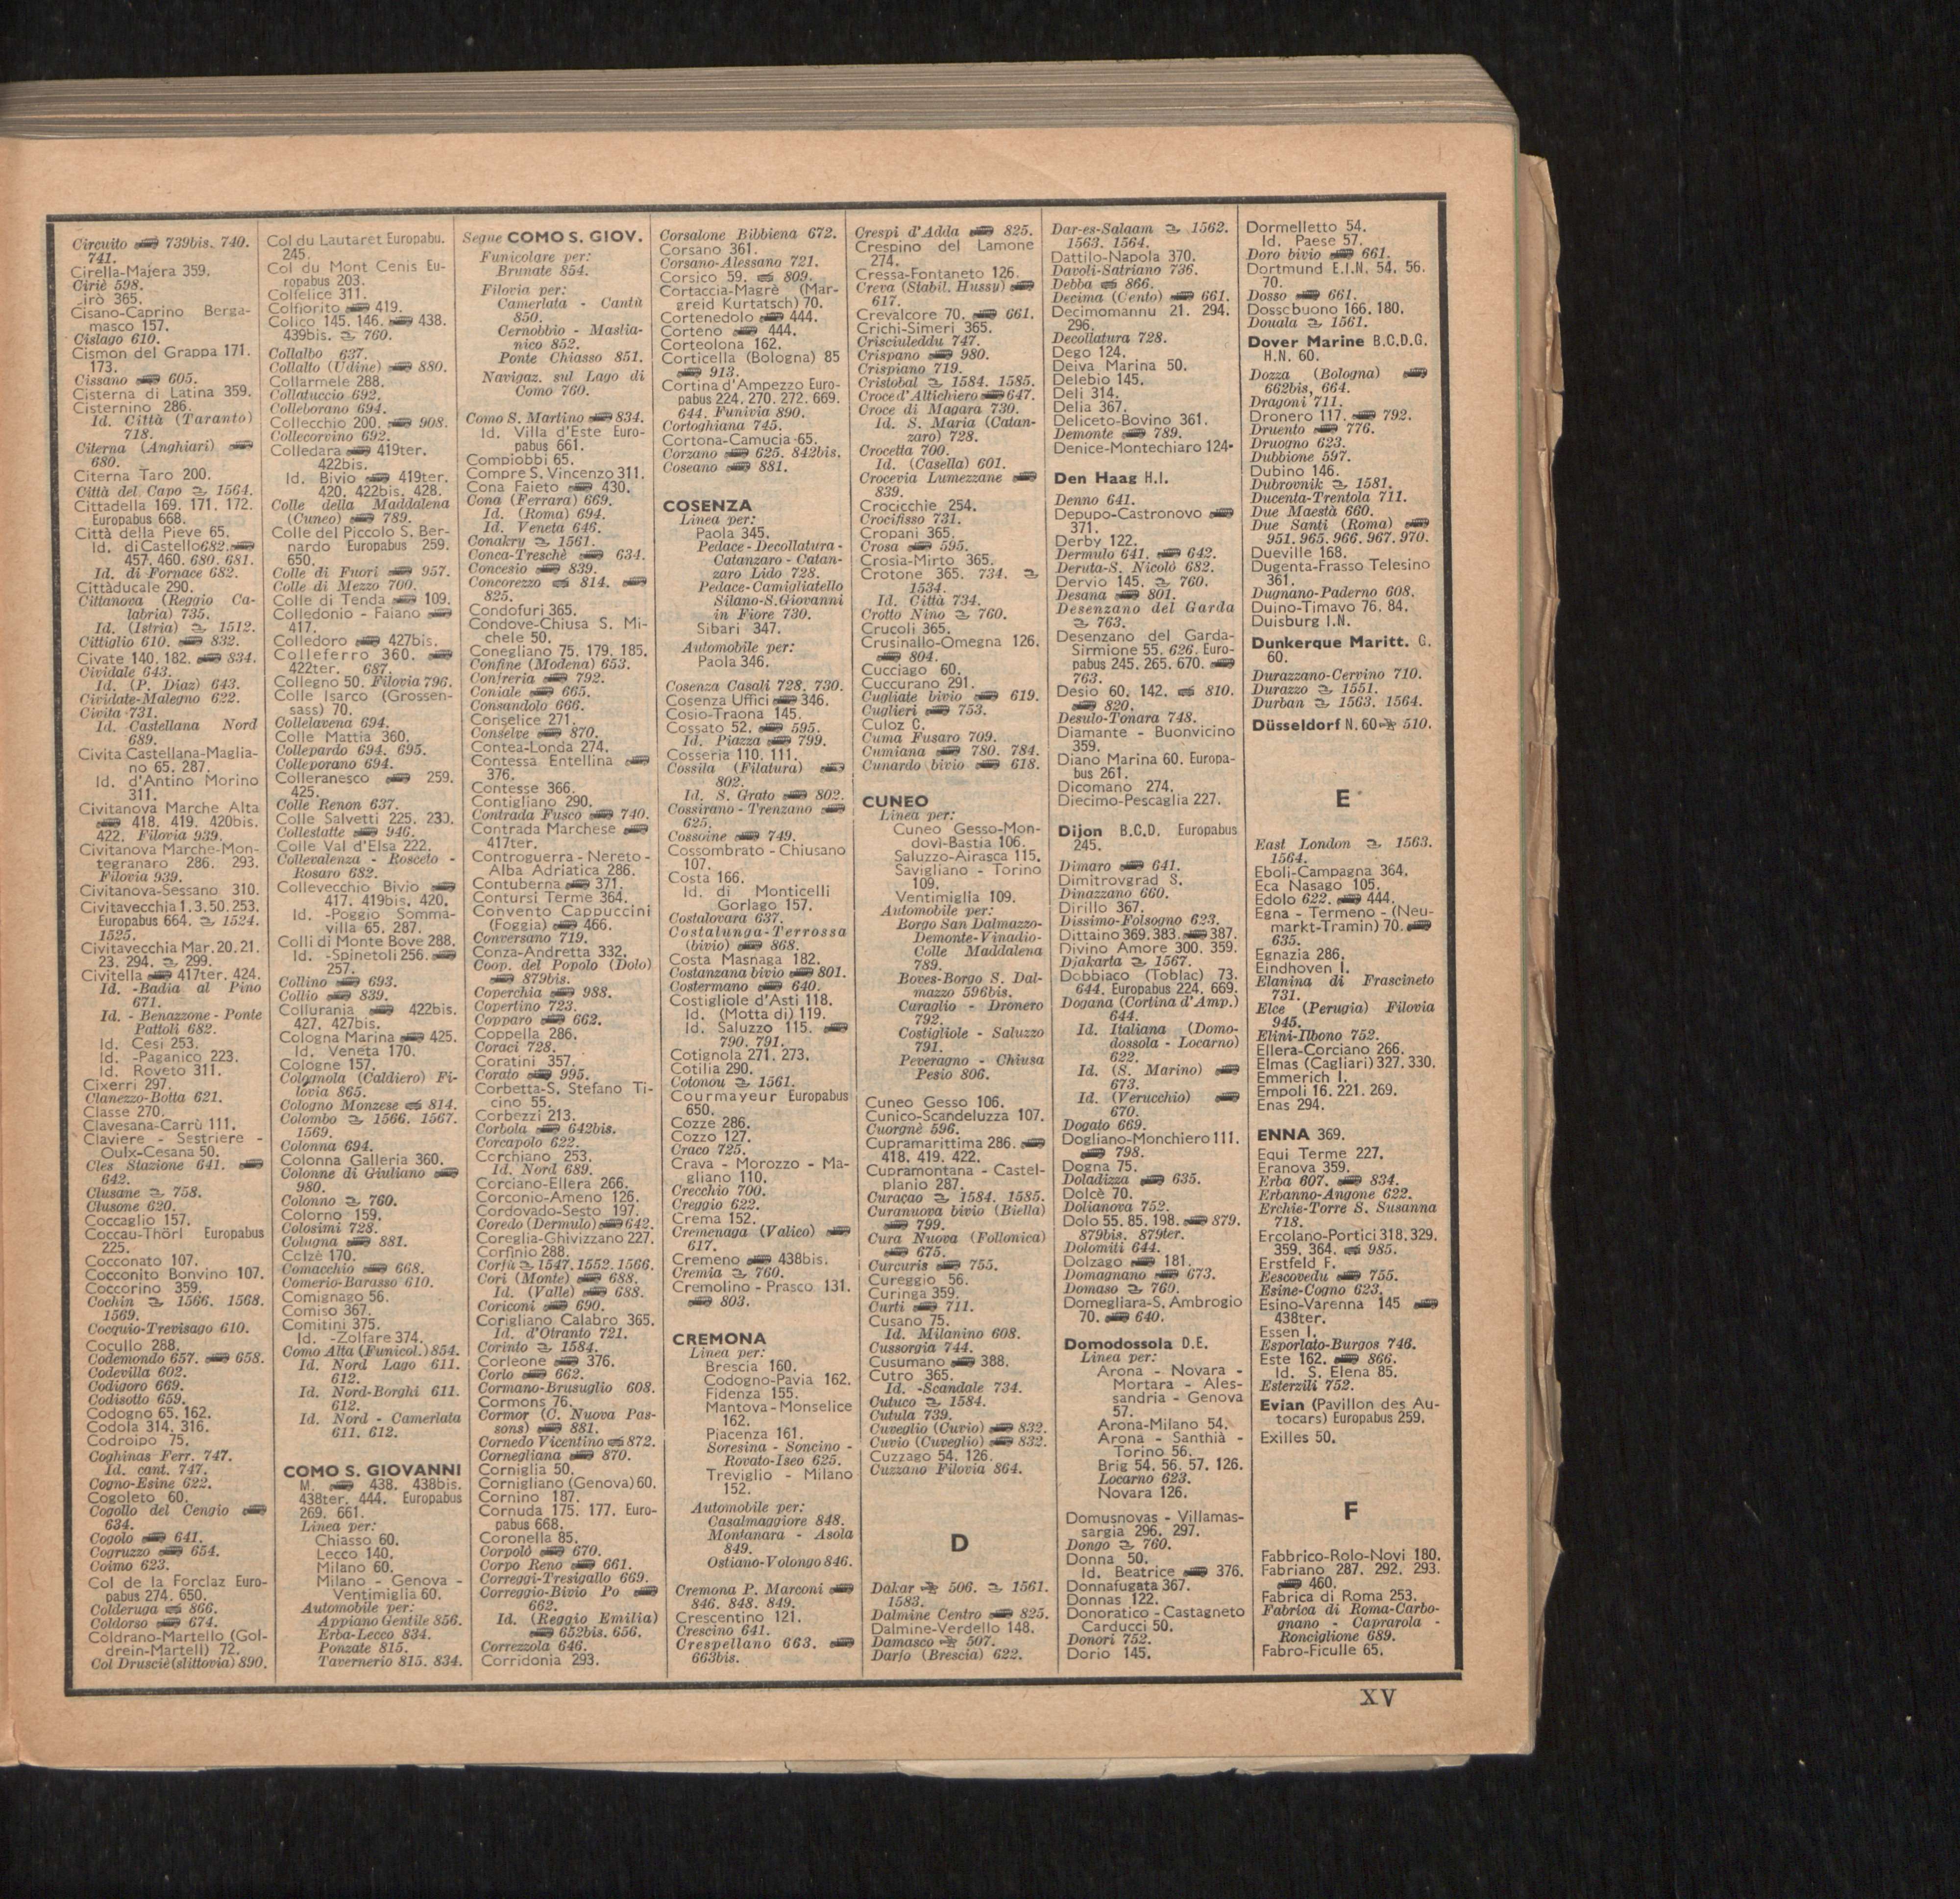 Circuito 739bis. 740.
741.
Cirella-Majera 359.
Ciriè 598.
irò 365.
Cisano-Caprino Berga-
masco 157.
Cislago 610.
Cismon del Grappa 171.
173.
Cissano 605.
Cisterna di Latina 359.
Cisternino 286.
Id. Città (Taranto)
718.
Citerna (Anghiari)
680.
Citerna Taro 200.
Città del Capo 1564.
Cittadella 169. 171. 172.
Europabus 668.
Città della Pieve 65.
Id. di Castello 682.
457. 460. 680. 681.
Id. di Fornace 682.
Cittàducale 290.
Cittanova (Reggio Ca-
labria) 735.
Id. (Istria) 1512.
Cittiglio 610. 832.
Civate 140. 182. 834.
Cividale 643.
Id. (P. Diaz) 643.
Cividate-Malegno 622.
Civita 731.
Id. Castellana Nord
689.
Civita Castellana-Maglia-
no 65. 287.
Id. d'Antino Morino
311.
Civitanova Marche Alta
418. 419. 420bis.
422. Filovia 939.
Civitanova Marche-Mon-
tegranaro 286. 293.
Filovia 939.
Civitanova-Sessano 310.
Civitavecchia 1. 3. 50. 253.
Europabus 664. 1524.
1525.
Civitavecchia Mar. 20. 21.
23. 294. 299.
Civitella 417ter. 424.
Id. -Badia al Pino
671.
Id. - Benazzone - Ponte
Pattoli 682.
Id. Cesi 253.
Id. -Paganico 223.
Id. Roveto 311.
Cixerri 297.
Clanezzo-Botta 621.
Classe 270.
Clavesana-Carrù 111.
Claviere - Sestriere -
Oulx-Cesana 50.
Cles Stazione 641.
642.
Clusane 758.
Clusone 620.
Coccaglio 157.
Coccau-Thörl Europabus
225.
Cocconato 107.
Cocconito Bonvino 107.
Coccorino 359.
Cochin 1566. 1568.
1569.
Cocquio-Trevisago 610.
Cocullo 288.
Codemondo 657. 658.
Codevilla 602.
Codigoro 669.
Codisotto 659.
Codogno 65. 162.
Codola 314. 316.
Codroipo 75.
Coghinas Ferr. 747.
Id. cant. 747.
Cogno-Esine 622.
Cogoleto 60.
Cogollo del Cengio
634.
Cogolo 641.
Cogruzzo 654.
Coimo 623.
Col de la Forclaz Euro-
pabus 274. 650.
Colderuga 866.
Coldorso 674.
Coldrano-Martello (Gol-
drein-Martell) 72.
Col Drusciè (slittovia) 890.
Col du Lautaret Europabu.
245.
Col du Mont Cenis Eu-
ropabus 203.
Colfelice 311.
Colfiorito 419.
Colico 145. 146. 438.
439bis. 760.
Collalbo 637.
Collalto (Udine) 880.
Collarmele 288.
Collatuccio 692.
Colleborano 694.
Collecchio 200. 908.
Collecorvino 692.
Colledara 419ter.
422bis.
Id. Bivio 419ter.
420. 422bis. 428.
Colle della Maddalena
(Cuneo) 789.
Colle del Piccolo S. Ber-
nardo Europabus 259.
650.
Colle di Fuori 957.
Colle di Mezzo 700.
Colle di Tenda 109.
Colledonio - Faiano
417.
Colledoro 427bis.
Colleferro 360.
422ter. 687.
Collegno 50. Filovia 796.
Colle Isarco (Grossen-
sass) 70.
Collelavena 694.
Colle Mattia 360.
Collepardo 694. 695.
Colleporano 694.
Colleranesco 259.
425.
Colle Renon 637.
Colle Salvetti 225. 230.
Collestatte 946.
Colle Val d'Elsa 222.
Collevalenza - Rosceto -
Rosaro 682.
Collevecchio Bivio
417. 419bis. 420.
Id. -Poggio Somma-
villa 65. 287.
Colli di Monte Bove 288.
Id. -Spinetoli 256.
257.
Collino 693.
Collio 839.
Collurania 422bis.
427. 427bis.
Cologna Marina 425.
Id. Veneta 170.
Cologne 157.
Colognola (Caldiero) Fi-
lovia 865.
Cologno Monzese 814.
Colombo 1566. 1567.
1569.
Colonna 694.
Colonna Galleria 360.
Colonne di Giuliano
980.
Colonno 760.
Colorno 159.
Colosimi 728.
Colugna 881.
Colzè 170.
Comacchio 668.
Comerio-Barasso 610.
Comignago 56.
Comiso 367.
Comitini 375.
Id. -Zolfare 374.
Como Alta (Funicol.) 854.
Id. Nord Lago 611.
612.
Id. Nord-Borghi 611.
612.
Id. Nord - Camerlata
611. 612.
COMO S. GIOVANNI
M. 438. 438bis.
438ter. 444. Europabus
269. 661.
Linea per:
Chiasso 60.
Lecco 140.
Milano 60.
Milano - Genova -
Ventimiglia 60.
Automobile per:
Appiano Gentile 856.
Erba-Lecco 834.
Ponzate 815.
Tavernerio 815. 834.
Segue COMO S. GIOV.
Funicolare per:
Brunate 854.
Filovia per:
Camerlata - Cantù
850.
Cernobbio - Maslia-
nico 852.
Ponte Chiasso 851.
Navigaz. sul Lago di
Como 760.
Como S. Martino 834.
Id. Villa d'Este Euro-
pabus 661.
Compiobbi 65.
Compre S. Vincenzo 311.
Cona Faieto 430.
Cona (Ferrara) 669.
Id. (Roma) 694.
Id. Veneta 646.
Conakry 1561.
Conca-Treschè 634.
Concesio 839.
Concorezzo 814.
825.
Condofuri 365.
Condove-Chiusa S. Mi-
chele 50.
Conegliano 75. 179. 185.
Confine (Modena) 653.
Confreria 792.
Coniale 665.
Consandolo 666.
Conselice 271.
Conselve 870.
Contea-Londa 274.
Contessa Entellina
376.
Contesse 366.
Contigliano 290.
Contrada Fusco 740.
Contrada Marchese
417ter.
Controguerra - Nereto -
Alba Adriatica 286.
Contuberna 371.
Contursi Terme 364.
Convento Cappuccini
(Foggia) 466.
Conversano 719.
Conza-Andretta 332.
Coop. del Popolo (Dolo)
879bis.
Coperchia 988.
Copertino 723.
Copparo 662.
Coppella 286.
Coraci 728.
Coratini 357.
Corato 995.
Corbetta-S. Stefano Ti-
cino 55.
Corbezzi 213.
Corbola 642bis.
Corcapolo 622.
Corchiano 253.
Id. Nord 689.
Corciano-Ellera 266.
Corconio-Ameno 126.
Cordovado-Sesto 197.
Coredo (Dermulo) 642.
Coreglia-Ghivizzano 227.
Corfinio 288.
Corfù 1547. 1552. 1566.
Cori (Monte) 688.
Id. (Valle) 688.
Coriconi 690.
Corigliano Calabro 365.
Id. d'Otranto 721.
Corinto 1584.
Corleone 376.
Corlo 662.
Cormano-Brusuglio 608.
Cormons 76.
Cormor (C. Nuova Pas-
sons) 881.
Cornedo Vicentino 872.
Cornegliana 870.
Corniglia 50.
Cornigliano (Genova) 60.
Cornino 187.
Cornuda 175. 177. Euro-
pabus 668.
Coronella 85.
Corpolò 670.
Corpo Reno 661.
Correggi-Tresigallo 669.
Correggio-Bivio Po
662.
Id. (Reggio Emilia)
652bis. 656.
Correzzola 646.
Corridonia 293.
Corsalone Bibbiena 672.
Corsano 361.
Corsano-Alessano 721.
Corsico 59. 809.
Cortaccia-Magrè (Mar-
greid Kurtatsch) 70.
Cortenedolo 444.
Corteno 444.
Corteolona 162.
Corticella (Bologna) 85
913.
Cortina d'Ampezzo Euro-
pabus 224. 270. 272. 669.
644. Funivia 890.
Cortoghiana 745.
Cortona-Camucia 65.
Corzano 625. 842bis.
Coseano 881.
COSENZA
Linea per:
Paola 345.
Pedace - Decollatura -
Catanzaro - Catan-
zaro Lido 728.
Pedace-Camigliatello
Silano-S.Giovanni
in Fiore 730.
Sibari 347.
Automobile per:
Paola 346.
Cosenza Casali 728. 730.
Cosenza Uffici 346.
Cosio-Traona 145.
Cossato 52. 595.
Id. Piazza 799.
Cosseria 110. 111.
Cossila (Filatura)
802.
Id. S. Grato 802.
Cossirano - Trenzano
625.
Cossoine 749.
Cossombrato - Chiusano
107.
Costa 166.
Id. di Monticelli
Gorlago 157.
Costalovara 637.
Costalunga-Terrossa
(bivio) 868.
Costa Masnaga 182.
Costanzana bivio 801.
Costermano 640.
Costigliole d'Asti 118.
Id. (Motta di) 119.
Id. Saluzzo 115.
790. 791.
Cotignola 271. 273.
Cotilia 290.
Cotonou 1561.
Courmayeur Europabus
650.
Cozze 286.
Cozzo 127.
Craco 725.
Crava - Morozzo - Ma-
gliano 110.
Crecchio 700.
Creggio 622.
Crema 152.
Cremenaga (Valico)
617.
Cremeno 438bis.
Cremia 760.
Cremolino - Prasco 131.
803.
CREMONA
Linea per:
Brescia 160.
Codogno-Pavia 162.
Fidenza 155.
Mantova - Monselice
162.
Piacenza 161.
Soresina - Soncino -
Rovato-Iseo 625.
Treviglio - Milano
152.
Automobile per:
Casalmaggiore 848.
Montanara - Asola
849.
Ostiano-Volongo 846.
Cremona P. Marconi
846. 848. 849.
Crescentino 121.
Crescino 641.
Crespellano 663.
663bis.
Crespi d'Adda 825.
Crespino del Lamone
274.
Cressa-Fontaneto 126.
Creva (Stabil. Hussy)
617.
Crevalcore 70. 661.
Crichi-Simeri 365.
Crisciuleddu 747.
Crispano 980.
Crispiano 719.
Cristobal 1584. 1585.
Croce d'Altichiero 647.
Croce di Magara 730.
Id. S. Maria (Catan-
zaro) 728.
Crocetta 700.
Id. (Casella) 601.
Crocevia Lumezzane
839.
Crocicchie 254.
Crocifisso 731.
Cropani 365.
Crosa 595.
Crosia-Mirto 365.
Crotone 365. 734.
1534.
Id. Città 734.
Crotto Nino 760.
Crucoli 365.
Crusinallo-Omegna 126.
804.
Cucciago 60.
Cuccurano 291.
Cugliate bivio 619.
Cuglieri 753.
Culoz C.
Cuma Fusaro 709.
Cumiana 780. 784.
Cunardo bivio 618.
CUNEO
Linea per:
Cuneo Gesso-Mon-
dovì-Bastia 106.
Saluzzo-Airasca 115.
Savigliano - Torino
109.
Ventimiglia 109.
Automobile per:
Borgo San Dalmazzo-
Demonte-Vinadio-
Colle Maddalena
789.
Boves-Borgo S. Dal-
mazzo 596bis.
Caraglio - Dronero
792.
Costigliole - Saluzzo
791.
Peveragno - Chiusa
Pesio 806.
Cuneo Gesso 106.
Cunico-Scandeluzza 107.
Cuorgnè 596.
Cupramarittima 286.
418. 419. 422.
Cupramontana - Castel-
planio 287.
Curaçao 1584. 1585.
Curanuova bivio (Biella)
799.
Cura Nuova (Follonica)
675.
Curcuris 755.
Cureggio 56.
Curinga 359.
Curti 711.
Cusano 75.
Id. Milanino 608.
Cussorgia 744.
Cusumano 388.
Cutro 365.
Id. -Scandale 734.
Cutuco 1584.
Cutula 739.
Cuveglio (Cuvio) 832.
Cuvio (Cuveglio) 832.
Cuzzago 54. 126.
Cuzzano Filovia 864.
D
Dakar 506. 1561.
1583.
Dalmine Centro 825.
Dalmine-Verdello 148.
Damasco 507.
Darfo (Brescia) 622.
Dar-es-Salaam 1562.
1563. 1564.
Dattilo-Napola 370.
Davoli-Satriano 736.
Debba 866.
Decima (Cento) 661.
Decimomannu 21. 294.
296.
Decollatura 728.
Dego 124.
Deiva Marina 50.
Delebio 145.
Deli 314.
Delia 367.
Deliceto-Bovino 361.
Demonte 789.
Denice-Montechiaro 124.
Den Haag H.I.
Denno 641.
Depupo-Castronovo
371.
Derby 122.
Dermulo 641. 642.
Deruta-S. Nicolò 682.
Dervio 145. 760.
Desana 801.
Desenzano del Garda
763.
Desenzano del Garda-
Sirmione 55. 626. Euro-
pabus 245. 265. 670.
763.
Desio 60. 142. 810.
820.
Desulo-Tonara 748.
Diamante - Buonvicino
359.
Diano Marina 60. Europa-
bus 261.
Dicomano 274.
Diecimo-Pescaglia 227.
Dijon B.C.D. Europabus
245.
Dimaro 641.
Dimitrovgrad S.
Dinazzano 660.
Dirillo 367.
Dissimo-Folsogno 623.
Dittaino 369. 383. 387.
Divino Amore 300. 359.
Djakarta 1567.
Dobbiaco (Toblac) 73.
644. Europabus 224. 669.
Dogana (Cortina d'Amp.)
644.
Id. Italiana (Domo-
dossola - Locarno)
622.
Id. (S. Marino)
673.
Id. (Verucchio)
670.
Dogato 669.
Dogliano-Monchiero 111.
798.
Dogna 75.
Doladizza 635.
Dolcè 70.
Dolianova 752.
Dolo 55. 85. 198. 879.
879bis. 879ter.
Dolomiti 644.
Dolzago 181.
Domagnano 673.
Domaso 760.
Domegliara-S. Ambrogio
70. 640.
Domodossola D.E.
Linea per:
Arona - Novara -
Mortara - Ales-
sandria - Genova
57.
Arona-Milano 54.
Arona - Santhià -
Torino 56.
Brig 54. 56. 57. 126.
Locarno 623.
Novara 126.
Domusnovas - Villamas-
sargia 296. 297.
Dongo 760.
Donna 50.
Id. Beatrice 376.
Donnafugata 367.
Donnas 122.
Donoratico - Castagneto
Carducci 50.
Donori 752.
Dorio 145.
Dormelletto 54.
Id. Paese 57.
Doro bivio 661.
Dortmund E.I.N. 54. 56.
70.
Dosso 661.
Dossobuono 166. 180.
Douala 1561.
Dover Marine B.C.D.G.
H.N. 60.
Dozza (Bologna)
662bis, 664.
Dragoni 711.
Dronero 117. 792.
Druento 776.
Druogno 623.
Dubbione 597.
Dubino 146.
Dubrovnik 1581.
Ducenta-Trentola 711.
Due Maestà 660.
Due Santi (Roma)
951. 965. 966. 967. 970.
Dueville 168.
Dugenta-Frasso Telesino
361.
Dugnano-Paderno 608.
Duino-Timavo 76. 84.
Duisburg I.N.
Dunkerque Maritt. G.
60.
Durazzano-Cervino 710.
Durazzo 1551.
Durban 1563. 1564.
Düsseldorf N. 60 510.
E
East London 1563.
1564.
Eboli-Campagna 364.
Eca Nasago 105.
Edolo 622. 444.
Egna - Termeno - (Neu-
markt-Tramin) 70.
635.
Egnazia 286.
Eindhoven I.
Elamina di Frascineto
731.
Elce (Perugia) Filovia
945.
Elini-Ilbono 752.
Ellera-Corciano 266.
Elmas (Cagliari) 327. 330.
Emmerich I.
Empoli 16. 221. 269.
Enas 294.
ENNA 369.
Equi Terme 227.
Eranova 359.
Erba 607. 834.
Erbanno-Angone 622.
Erchie-Torre S. Susanna
718.
Ercolano-Portici 318. 329.
359. 364. 985.
Erstfeld F.
Eescovedu 755.
Esine-Cogno 623.
Esino-Varenna 145
438ter.
Essen I.
Esporlato-Burgos 746.
Este 162. 866.
Id. S. Elena 85.
Esterzili 752.
Evian (Pavillon des Au-
tocars) Europabus 259.
Exilles 50.
F
Fabbrico-Rolo-Novi 180.
Fabriano 287. 292. 293.
460.
Fabrica di Roma 253.
Fabrica di Roma-Carbo-
gnano - Caprarola -
Ronciglione 689.
Fabro-Ficulle 65.
XV